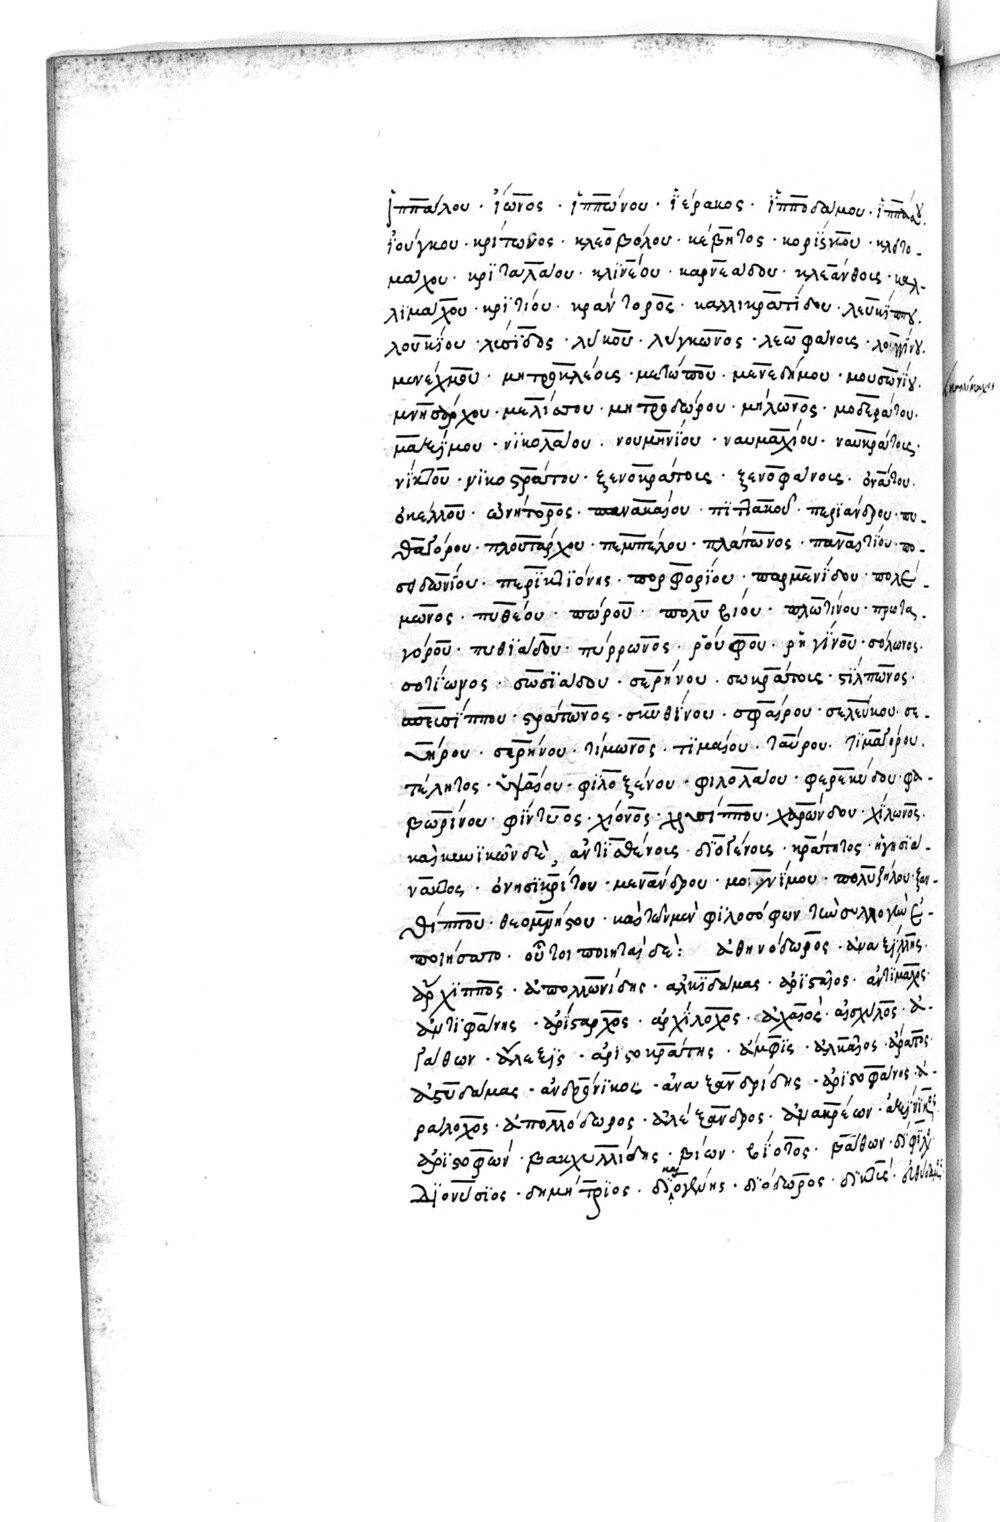 ἱππάλου · ἴωνος · ἱππώνου · ἱέρακος · ἱπποδάμου · ἱππάσου ·
ἰούγκου · κρίτωνος · κλεοβούλου · κέβητος · κορίσκου · κλειτο-
μάχου · κριτολάου · κλινέου · καρνεάδου · κλεάνθους · καλ-
λιμάχου · κριτίου · κράντορος · καλλικρατίδου · λευκίππου ·
λουκίου · λύσιδος · λύκου · λύγκωνος · λεωφάνους · λογγίνου ·
μενέχμου · μητροκλέους · μετώπου · μενεδήμου · μουσωνίου ·
μνησάρχου · μελίσσου · μητροδώρου · μήλωνος · μοδεράτου ·
μαξίμου · νικολάου · νουμηνίου · ναυμαχίου · ναυκράτους ·
νίκωνος · νικοστράτου · ξενοκράτους · ξενοφάνους · ὀνάτου ·
ὀκέλλου · ὠνήτορος · πανακαίου · πιττακοῦ · περιάνδρου · πυ-
θαγόρου · πλουτάρχου · πεμπέλου · πλάτωνος · παναιτίου · πο-
σιδωνίου · περικτιόνης · πορφυρίου · παρμενίδου · πολέ-
μωνος · πυθέου · πώρου · πολυβίου · πλωτίνου · πρωτα-
γόρου · πυθιάδου · πύρρωνος · ῥούφου · ῥηγίνου · σόλωνος ·
σοτίωνος · σωσιάδου · σερήνου · σωκράτους · στίλπωνος ·
σπευσίππου · στράτωνος · σκυθίνου · σφαίρου · σελεύκου · σε-
υήρου · σερήνου · τίμωνος · τιμαίου · ταύρου · τιμαγόρου ·
τέλητος · ὑψαίου · φιλοξένου · φιλολάου · φερεκύδου · φα-
βωρίνου · φίντυος · χίονος · χρυσίππου · χαρώνδου · χίλωνος ·
καὶ κυνικῶν δὲ, ἀντισθένους · διογένους · κράτητος · ἡγησιά-
νακτος · ὀνησικρίτου · μενάνδρου · μονίμου · πολυζήλου · ξαν-
θίππου · θεομνήστου · καὶ τῶν μὲν φιλοσόφων τὼ συλλογὼ ἐ-
ποιήσατο · οὗτοι ποιηταὶ δέ : ἀθηνόδωρος · ἀναξίλης ·
ἄρχιππος · ἀπολλωνίδης · ἀλκιδάμας · ἀρισταῖος · ἀντίμαχος ·
ἀντιφάνης · ἀρίσταρχος · ἀρχίλοχος · ἀχαιός · αἰσχύλος · ἀ-
γάθων · ἄλεξις · ἀριστοκράτης · ἄμφις · ἀλκαῖος · ἄρατος ·
ἀστυδάμας · ἀνδρόνικος · ἀναξανδρίδης · ἀριστοφάνης · ἀ-
ραίοχος · ἀπολλόδωρος · ἀλέξανδρος · ἀνακρέων · ἀξιόνικος ·
ἀριστοφῶν · βακχυλλίδης · βίων · βίοτος · βάθων · δίφιλος ·
Διονύσιος · δημήτριος · διογένης · διόδωρος · δίκτυς ·